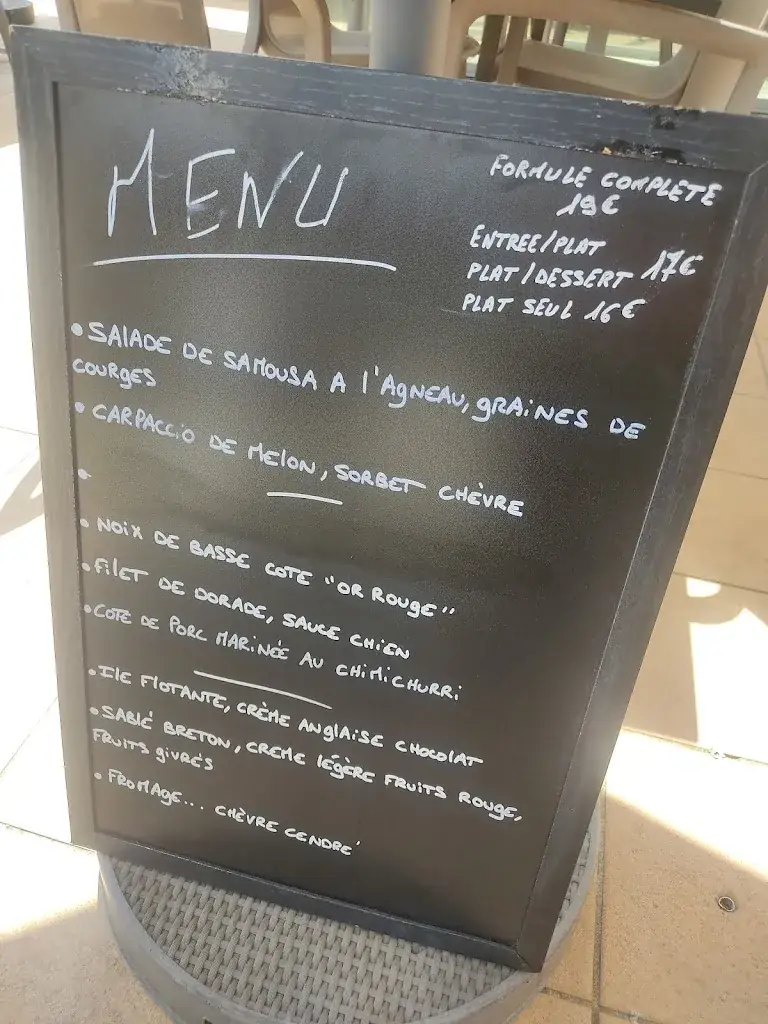 MENU
FORMULE COMPLETE
19€
ENTREE/PLAT
PLAT/DESSERT 17€
PLAT SEUL 16€
• SALADE DE SAMOUSA A l'AgNEAU, gRAiNES DE
COURgES
• CARPACCiO DE MElON, SORBET CHÈVRE
• NOiX DE BASSE COTE "OR ROUgE"
• FilET DE DORADE, SAUCE CHiEN
• COTE DE PORC MARiNÉE AU CHiMiCHURRi
• ILE FlOTANTE, CRÈME ANglAiSE CHOCOLAT
• SABlÉ BRETON, CREME légÈRE FRUiTS ROUgE,
FRUiTS giVRÉS
• FROMAgE... CHÈVRE CENDRÉ